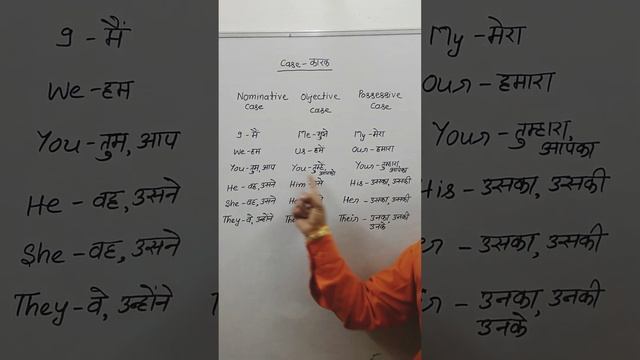 Case - कारक
Nominative Case Objective Case Possessive Case
I - मैं Me - मुझे My - मेरा
We - हम Us - हमें Our - हमारा
You - तुम, आप You - तुम्हें, आपको Your - तुम्हारा, आपका
He - वह, उसने Him His - उसका, उसकी
She - वह, उसने Her - उसका, उसकी
They - वे, उन्होंने Their - उनका, उनकी उनके
I - मैं
We - हम
You - तुम, आप
He - वह, उसने
She - वह, उसने
They - वे, उन्होंने
My - मेरा
Our - हमारा
Your - तुम्हारा, आपका
His - उसका, उसकी
- उसका, उसकी
- उनका, उनकी
उनके